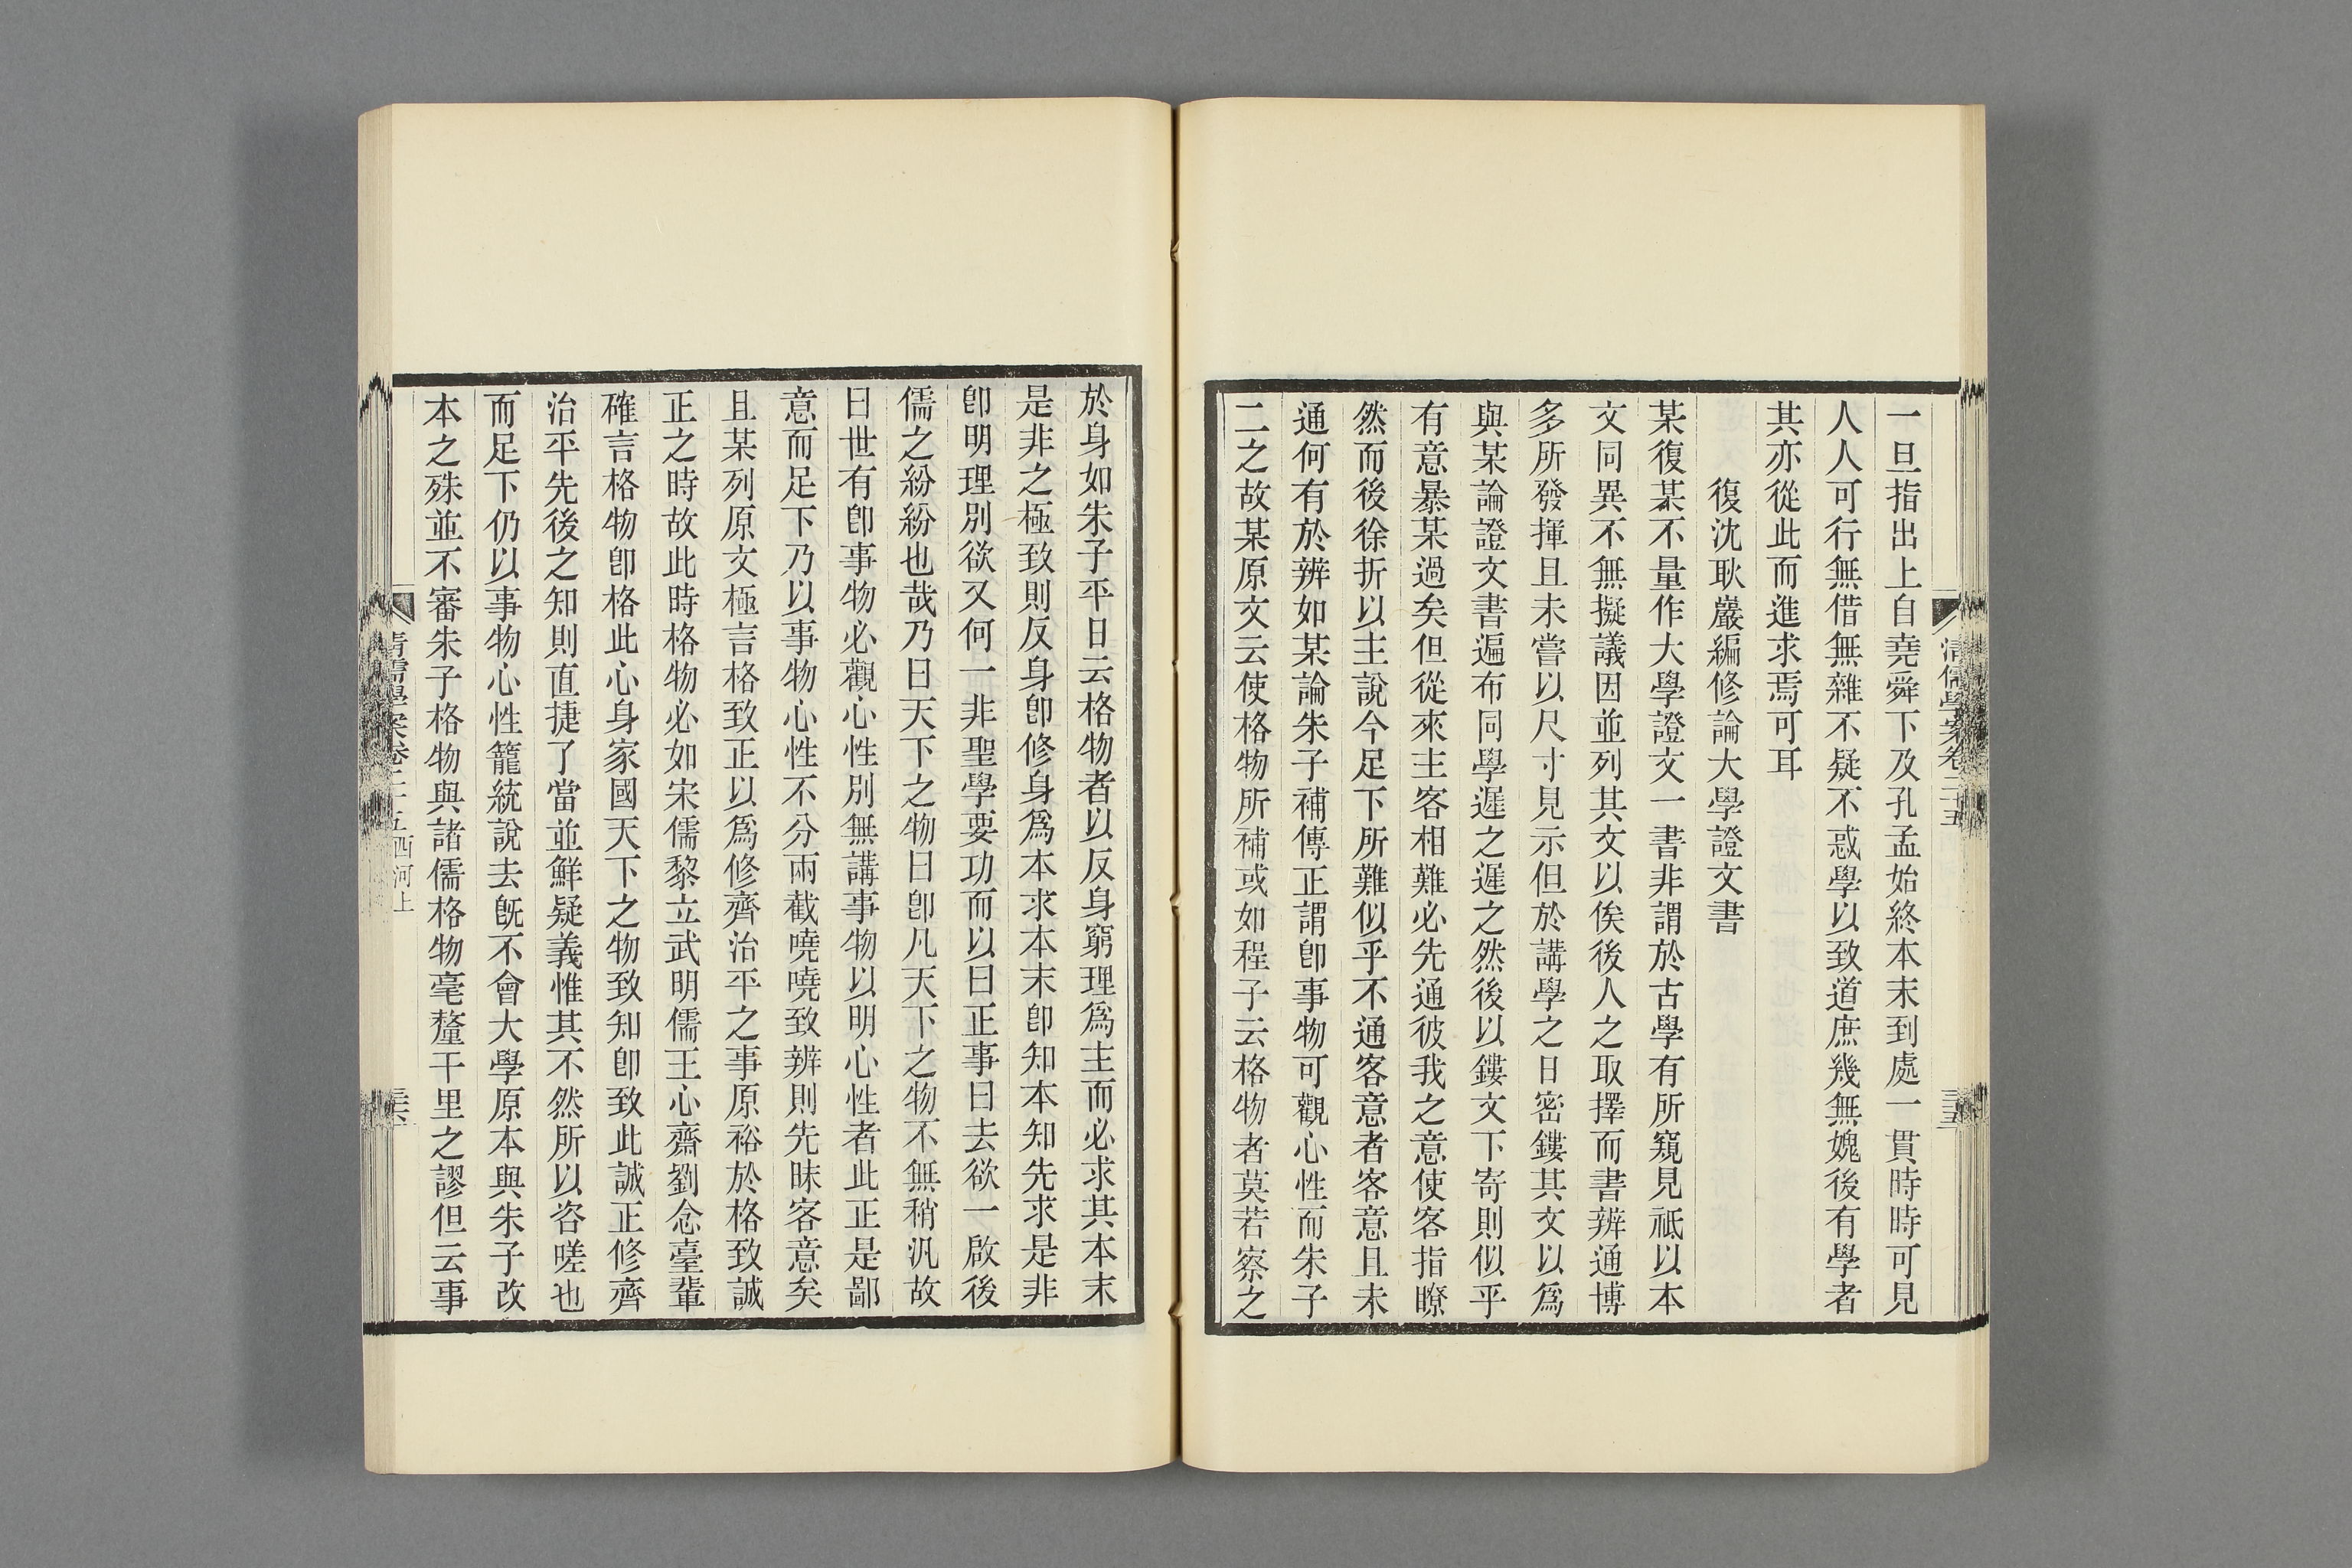 一旦指出上自堯舜下及孔孟始終本末到處一貫時時可見
人人可行無借無雜不疑不惑學以致道庶幾無媿後有學者
其亦從此而進求焉可耳
復沈耿巖編修論大學證文書
某復某不量作大學證文一書非謂於古學有所窺見祗以本
文同異不無擬議因並列其文以俟後人之取擇而書辨通博
多所發揮且未嘗以尺寸見示但於講學之日密鏤其文以爲
與某論證文書遍布同學遲之遲之然後以鏤文下寄則似乎
有意暴某過矣但從來主客相難必先通彼我之意使客指瞭
然而後徐折以主說今足下所難似乎不通客意者客意且未
通何有於辨如某論朱子補傳正謂卽事物可觀心性而朱子
二之故某原文云使格物所補或如程子云格物者莫若察之
清儒學案卷二十五
三五
於身如朱子平日云格物者以反身窮理爲主而必求其本末
是非之極致則反身卽修身爲本求本末卽知本知先求是非
卽明理別欲又何一非聖學要功而以曰正事曰去欲一啟後
儒之紛紛也哉乃曰天下之物曰卽凡天下之物不無稍汎故
曰世有卽事物必觀心性別無講事物以明心性者此正是鄙
意而足下乃以事物心性不分兩截嘵嘵致辨則先昧客意矣
且某列原文極言格致正以爲修齊治平之事原裕於格致誠
正之時故此時格物必如宋儒黎立武明儒王心齋劉念臺輩
確言格物卽格此心身家國天下之物致知卽致此誠正修齊
治平先後之知則直捷了當並鮮疑義惟其不然所以咨嗟也
而足下仍以事物心性籠統說去旣不會大學原本與朱子改
本之殊並不審朱子格物與諸儒格物毫釐千里之謬但云事
清儒學案卷二十五西河上
三六